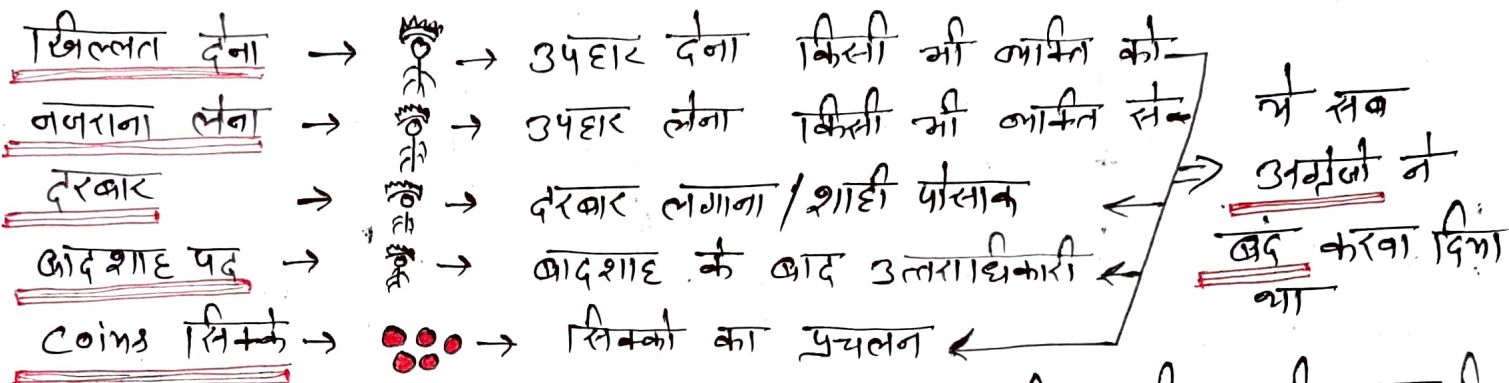 खिल्लत देना → → उपहार देना किसी भी व्यक्ति को
नजराना लेना → → उपहार लेना किसी भी व्यक्ति से
दरबार → → दरबार लगाना / शाही पोसाक
बादशाह पद → → बादशाह के बाद उत्तराधिकारी
Coins सिक्के → → सिक्को का प्रचलन
⇒ ये सब
अंग्रेजो ने
बंद करवा दिया
था